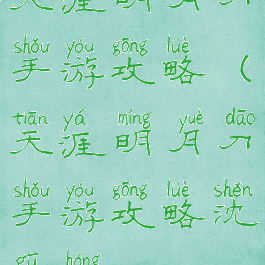 shǒu yóu gōng lüè
手游攻略（
tiān yá míng yuè dāo
天涯明月刀
shǒu yóu gōng lüè shěn
手游攻略沈